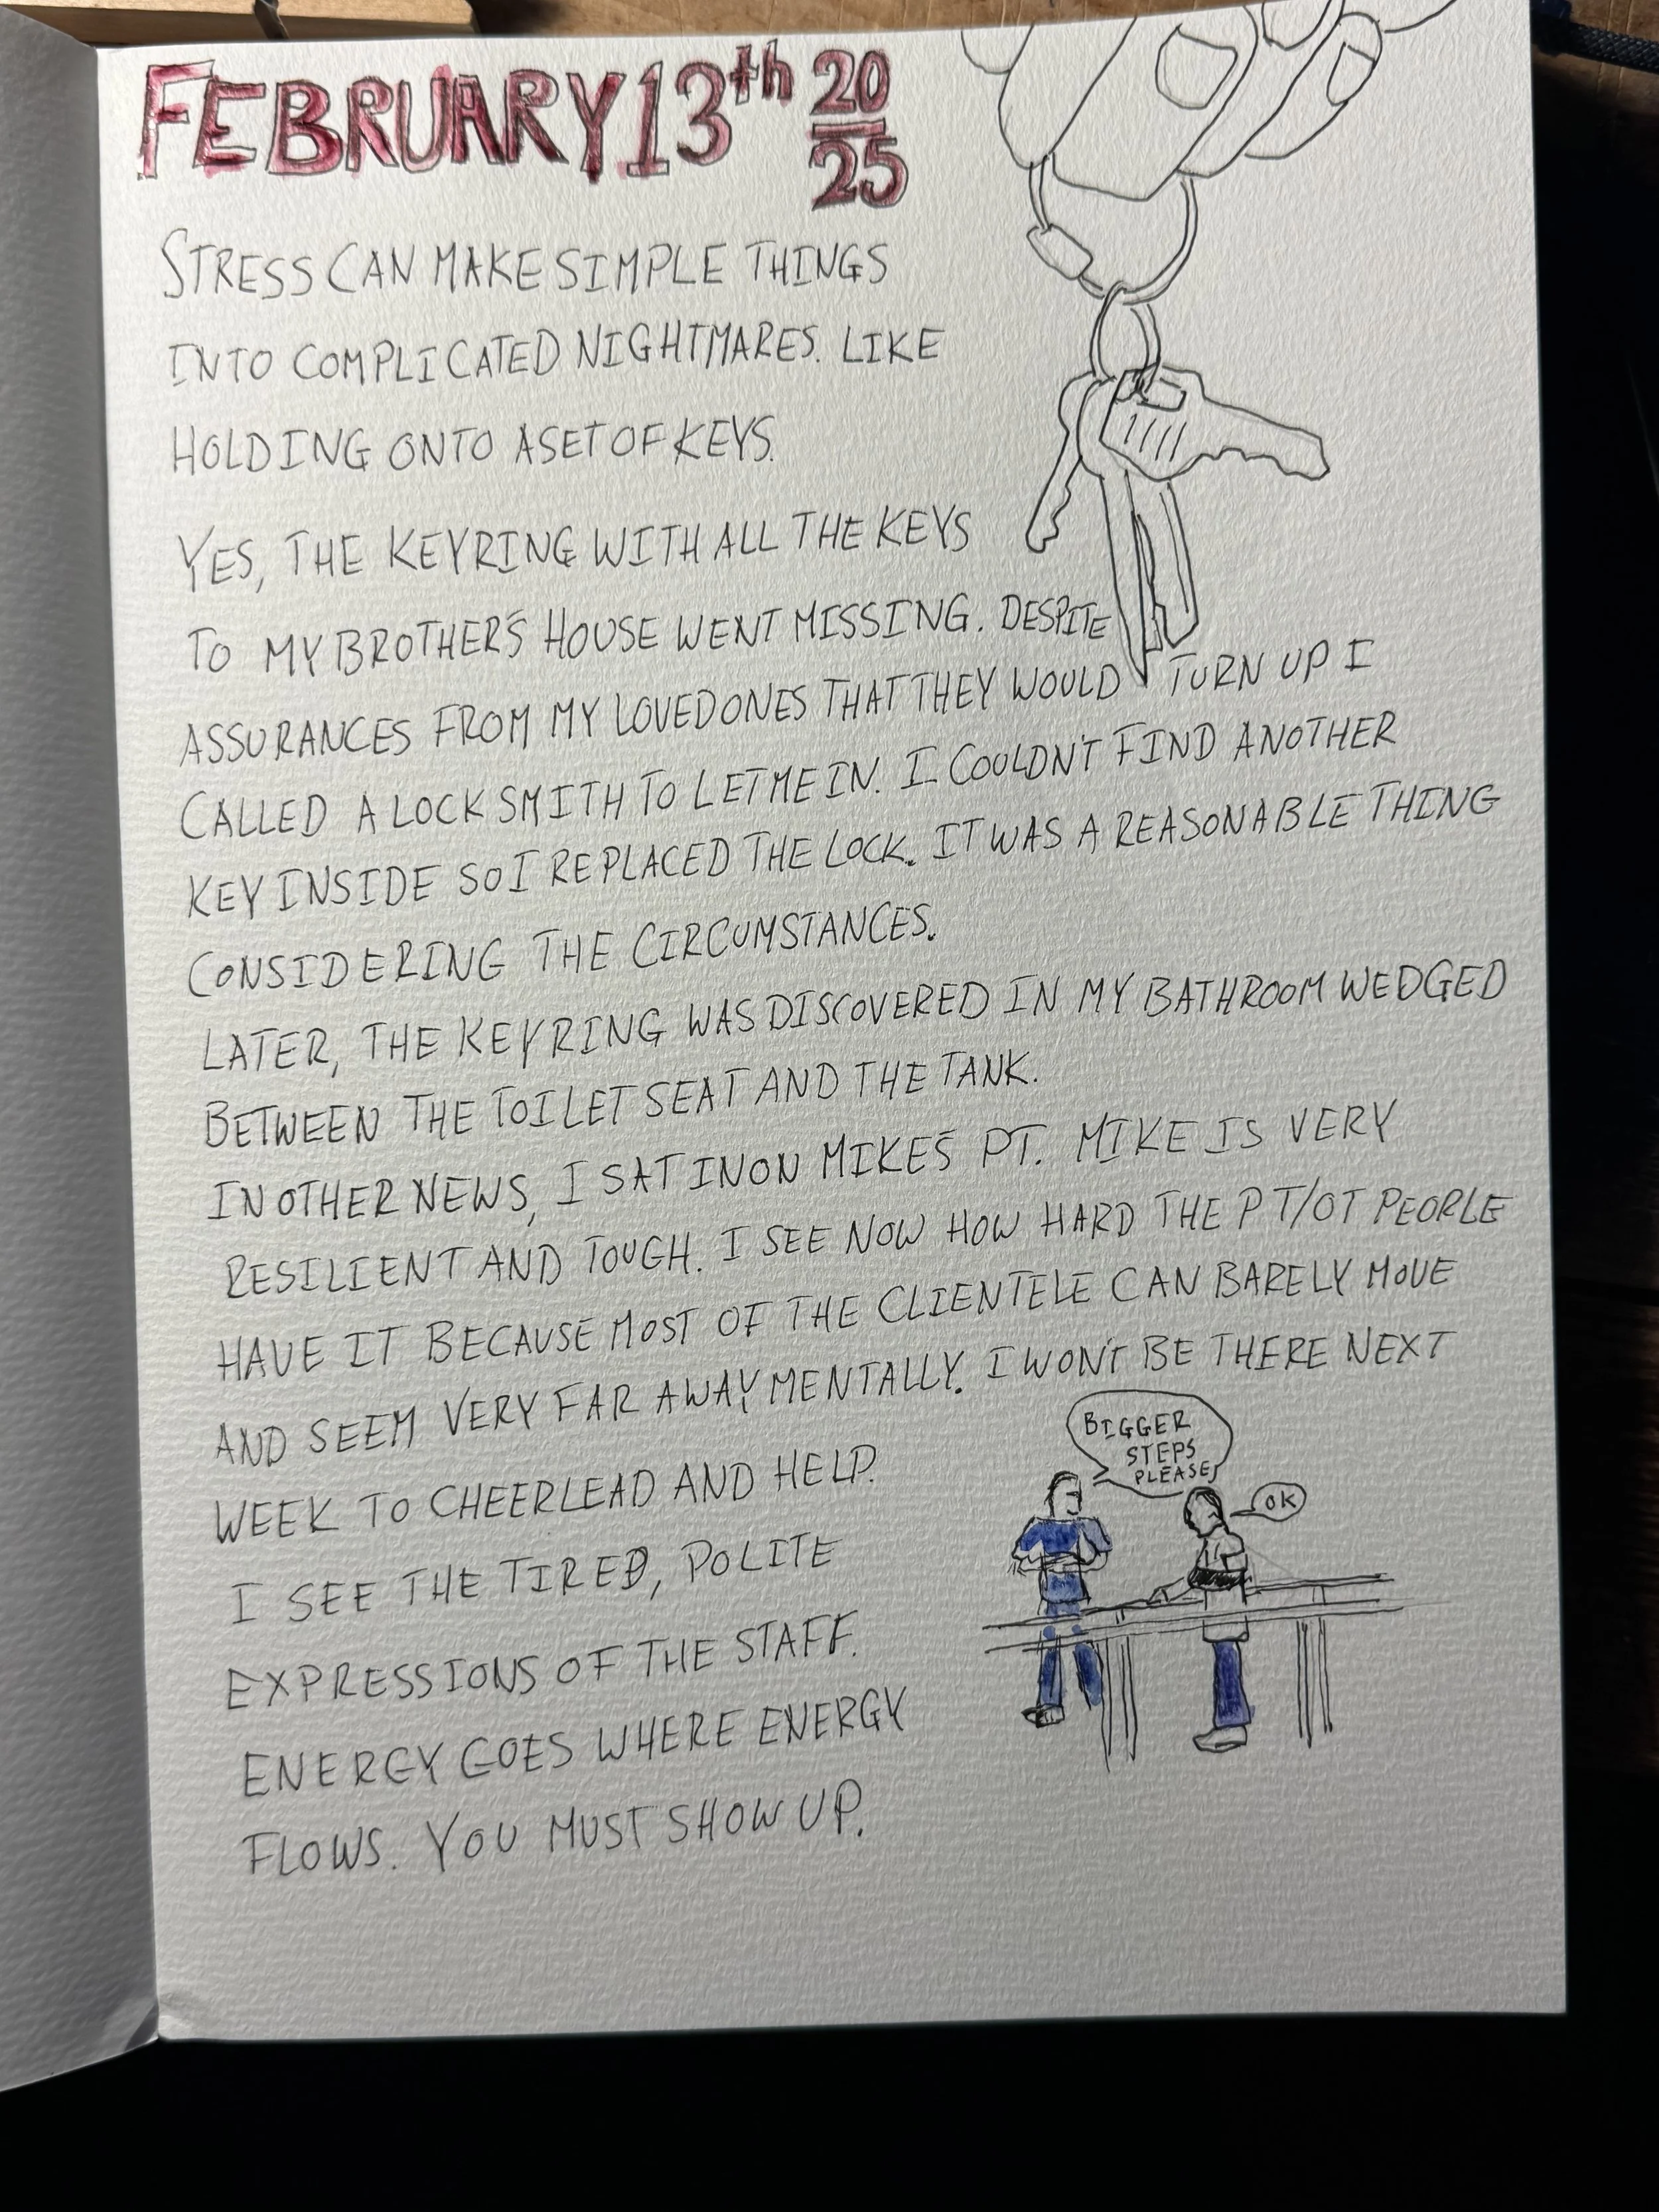 FEBRUARY 13th 20
25
STRESS CAN MAKE SIMPLE THINGS
INTO COMPLICATED NIGHTMARES. LIKE
HOLDING ONTO A SET OF KEYS.
YES, THE KEYRING WITH ALL THE KEYS
TO MY BROTHER'S HOUSE WENT MISSING. DESPITE
ASSURANCES FROM MY LOVED ONES THAT THEY WOULD TURN UP I
CALLED A LOCKSMITH TO LET ME IN. I COULDN'T FIND ANOTHER
KEY INSIDE SO I REPLACED THE LOCK. IT WAS A REASONABLE THING
CONSIDERING THE CIRCUMSTANCES.
LATER, THE KEYRING WAS DISCOVERED IN MY BATHROOM WEDGED
BETWEEN THE TOILET SEAT AND THE TANK.
IN OTHER NEWS, I SAT IN ON MIKE'S PT. MIKE IS VERY
RESILIENT AND TOUGH. I SEE NOW HOW HARD THE PT/OT PEOPLE
HAVE IT BECAUSE MOST OF THE CLIENTELE CAN BARELY MOVE
AND SEEM VERY FAR AWAY MENTALLY. I WON'T BE THERE NEXT
WEEK TO CHEERLEAD AND HELP.
I SEE THE TIRED, POLITE
EXPRESSIONS OF THE STAFF.
ENERGY GOES WHERE ENERGY
FLOWS. YOU MUST SHOW UP.
BIGGER
STEPS
PLEASE
OK